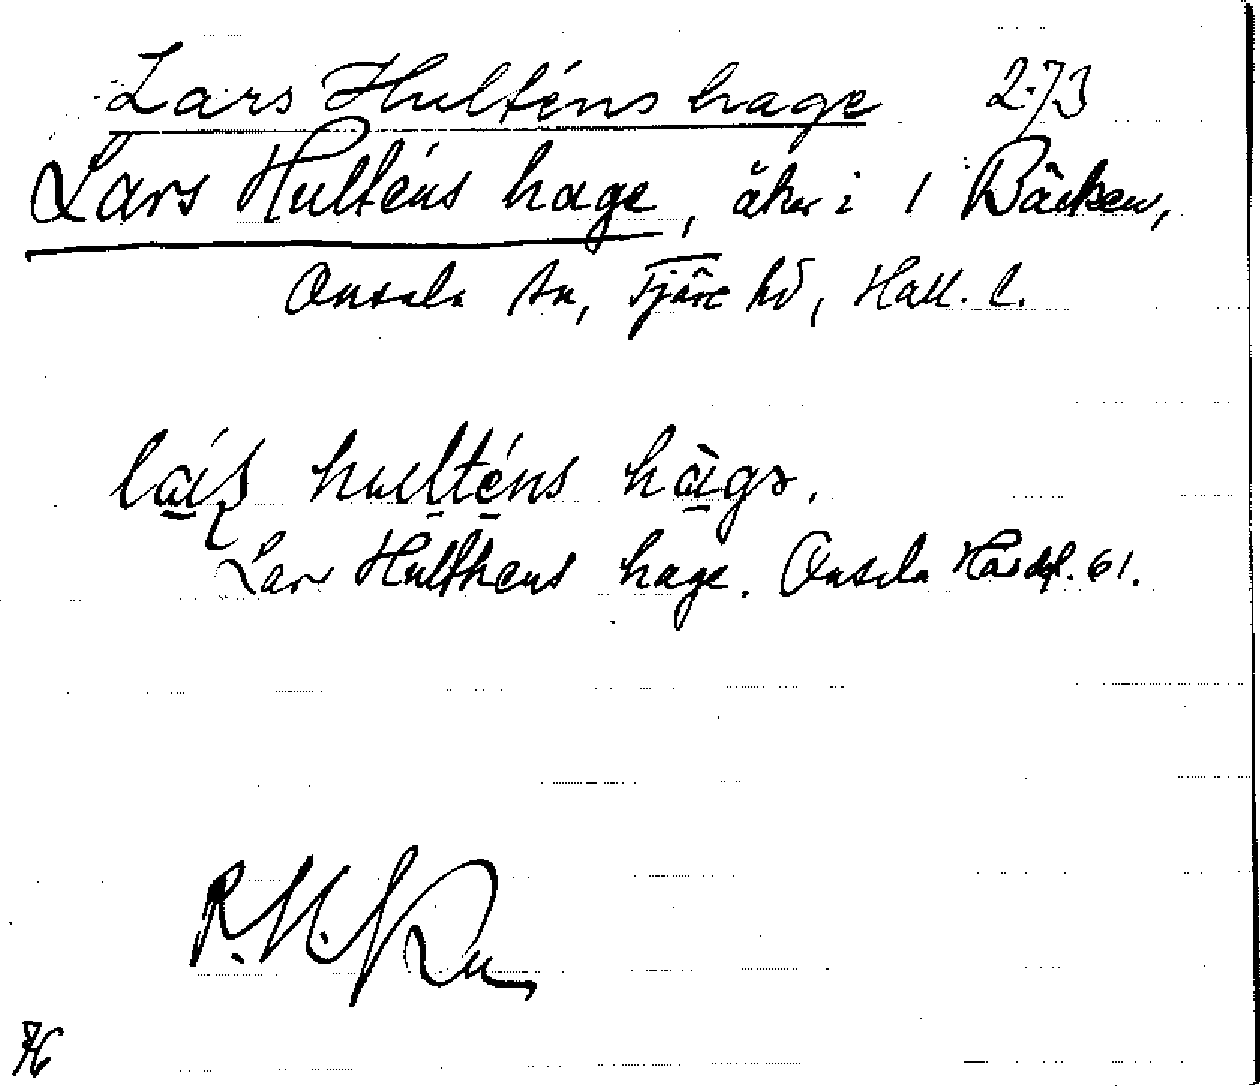 Lars Hulténs hage 273
Lars Hulténs hage, åker i 1 Bäcken,
Onsala sn, Fjäre hd, Hall. l.
hulténs
Lars Hulthens hage. Onsala 61.